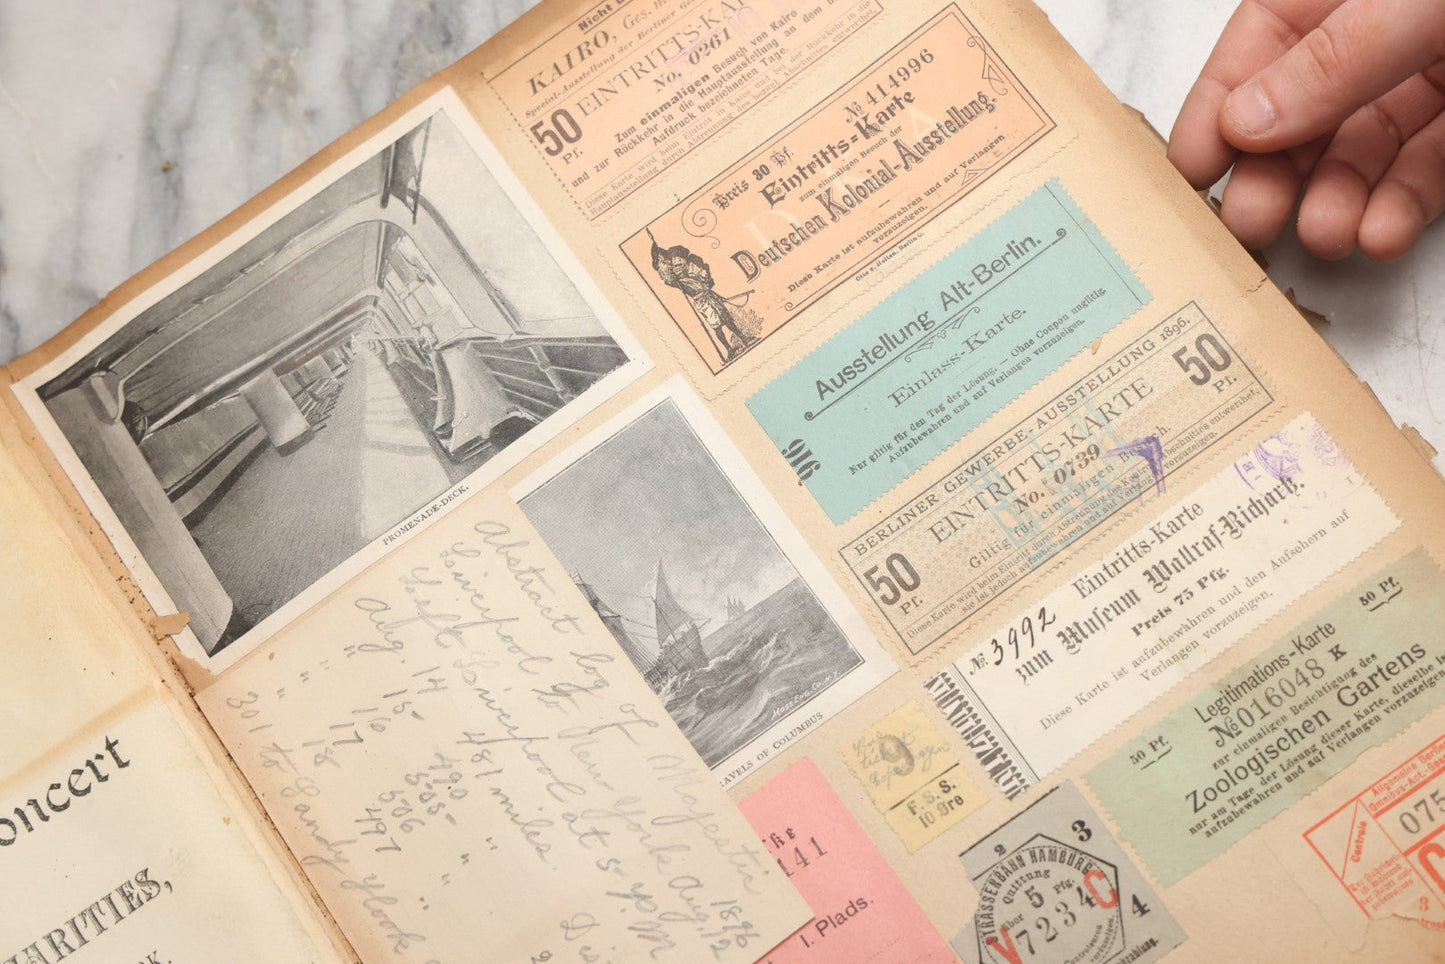 KAIRO,
Special-Ausstellung der Berliner
50 EINTRITTS-KA
Pf.
No. 0261
Zum einmaligen Besuch von Kairo
und zur Rückkehr in die Hauptausstellung an dem
Aufdruck bezeichneten Tage.
Diese Karte wird beim Eintritt in Kairo und bei der Rückkehr in die
Hauptausstellung durch Abtrennung des bezügl. Abschnittes entwerthet.
№ 414996
Preis 30 Pf.
Eintritts-Karte
zum einmaligen Besuch der
Deutschen Kolonial-Ausstellung.
Diese Karte ist aufzubewahren und auf Verlangen
vorzuzeigen.
Ausstellung Alt-Berlin.
Einlass-Karte.
Nur giltig für den Tag der Lösung. — Ohne Coupon ungiltig.
Aufzubewahren und auf Verlangen vorzuzeigen.
916
BERLINER GEWERBE-AUSSTELLUNG 1896.
50 EINTRITTS-KARTE 50
Pf. Pf.
No. 0739
Giltig für einmaligen
Diese Karte wird beim Eintritt durch Abtrennung des
sie ist jedoch aufzubewahren und auf
Eintritts-Karte
zum Museum Wallraf-Richartz.
№ 3992
Preis 75 Pfg.
Diese Karte ist aufzubewahren und den Aufsehern auf
Verlangen vorzuzeigen.
50 Pf.
Legitimations-Karte
№ 016048 K
50 Pf.
zur einmaligen Besichtigung des
Zoologischen Gartens
nur am Tage der Lösung dieser Karte, dieselbe
aufzubewahren und auf Verlangen vorzuzeigen.
PROMENADE-DECK.
MOSS ENG. CO. N.Y.
RAVELS OF COLUMBUS
Abstract log of Majestic
Liverpool to New York Aug. 1896
Left Liverpool at 5- P.M. Aug. 12
Aug. 14 481 miles
" 15- 490 "
" 16 505- "
" 17 506 "
" 18 497 "
301 to Sandy Hook
oncert
HARITIES,
9
F. S. S.
10 Øre
141
I. Plads.
2 3
STRASSENBAHN HAMBURG
Quittung
5 Pfg.
V 7234 C
4
Allgemeine Berliner
Omnibus-Act.
Centrale
075
C
3